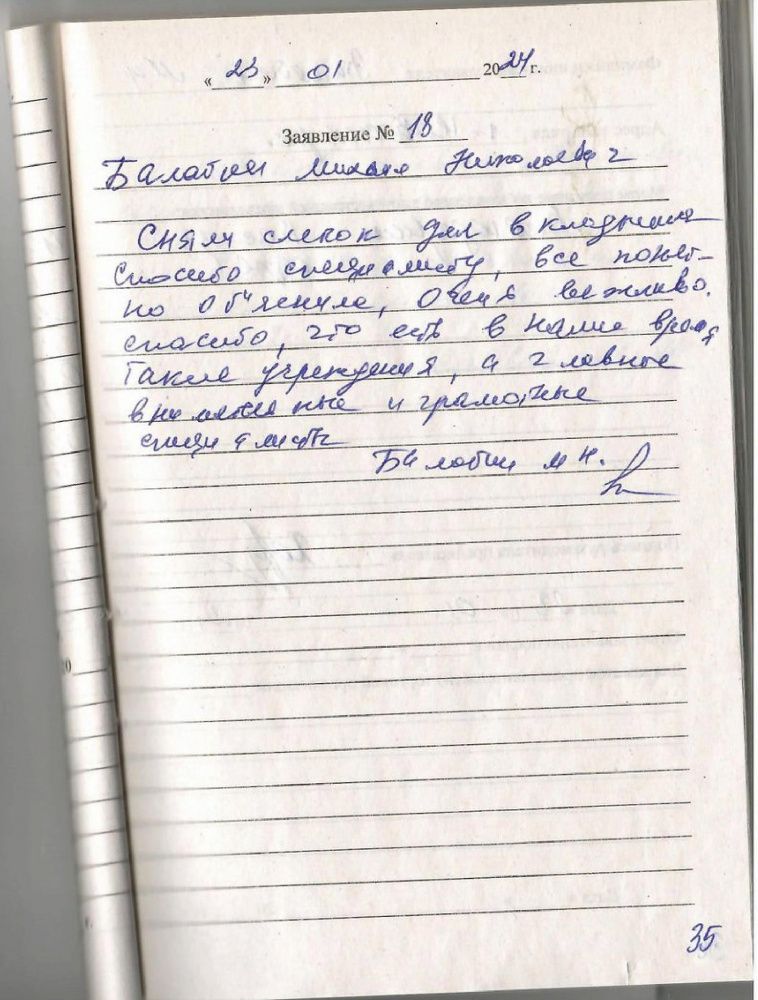 « 23 » 01 2024 г.
Заявление № 18
Балабин Михаил Николаевич
Снял слепок для вкладыша
спасибо специалисту, все понят-
но объяснила, очень вежливо.
спасибо, что есть в наше время
такие учреждения, а главное
внимательные и грамотные
специалисты
Балабин М Н.
35